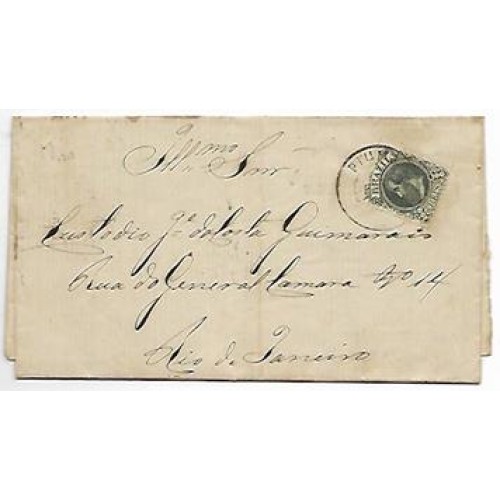 Illmo Snr
Custodio Je. da Costa Guimarais
Rua do General Camara No 14
Rio de Janeiro
BRAZIL